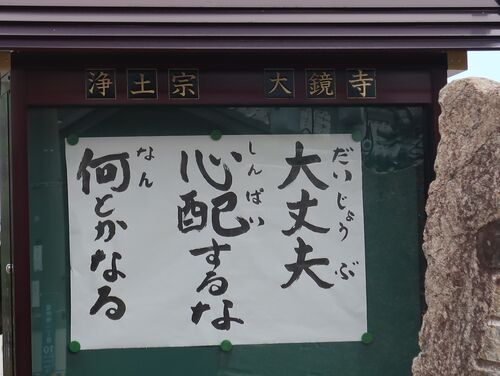 浄土宗 大鏡寺
大丈夫
だいじょうぶ
心配するな
しんぱい
何とかなる
なん